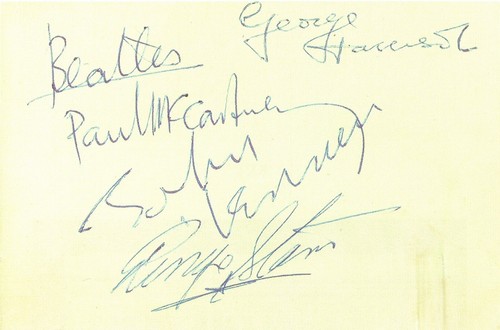 George
Harrison
Beatles
Paul McCartney
John
Lennon
Ringo Starr